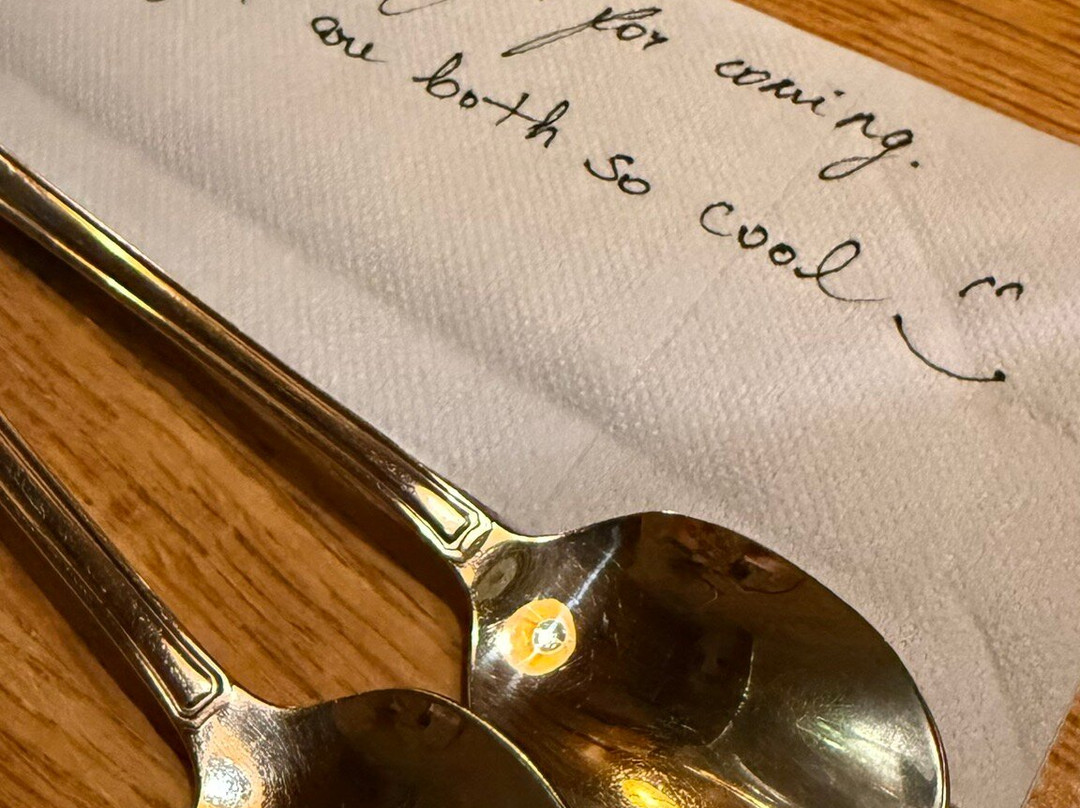 for coming.
are both so cool